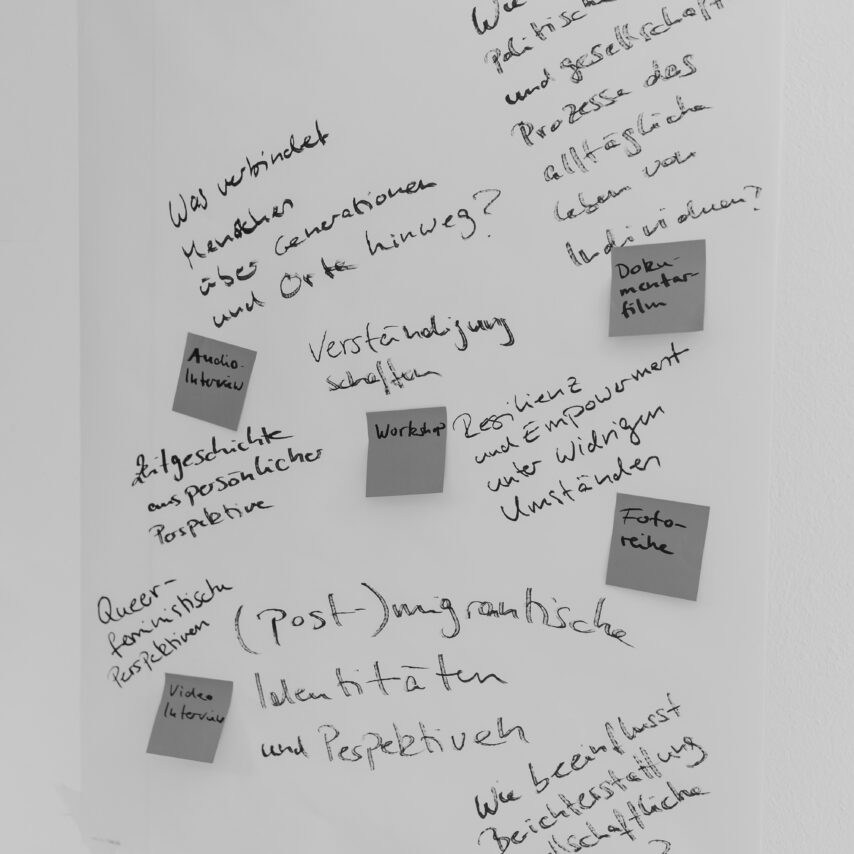 Wie
politische
und gesellschaft
Prozesse das
alltägliche
Leben von
Individuen?
Doku-
mentar-
film
Was verbindet
Menschen
über Generationen
und Orte hinweg?
Audio-
Interview
Verständigung
schaffen
Workshop
Resilienz
und Empowerment
unter widrigen
Umständen
Zeitgeschichte
aus persönlicher
Perspektive
Foto-
reihe
Queer-
feministische
Perspektiven
Video
Interview
(Post-)migrantische
Identitäten
und Pespektiven
Wie beeinflusst
Berichterstattung
llschaftliche
?